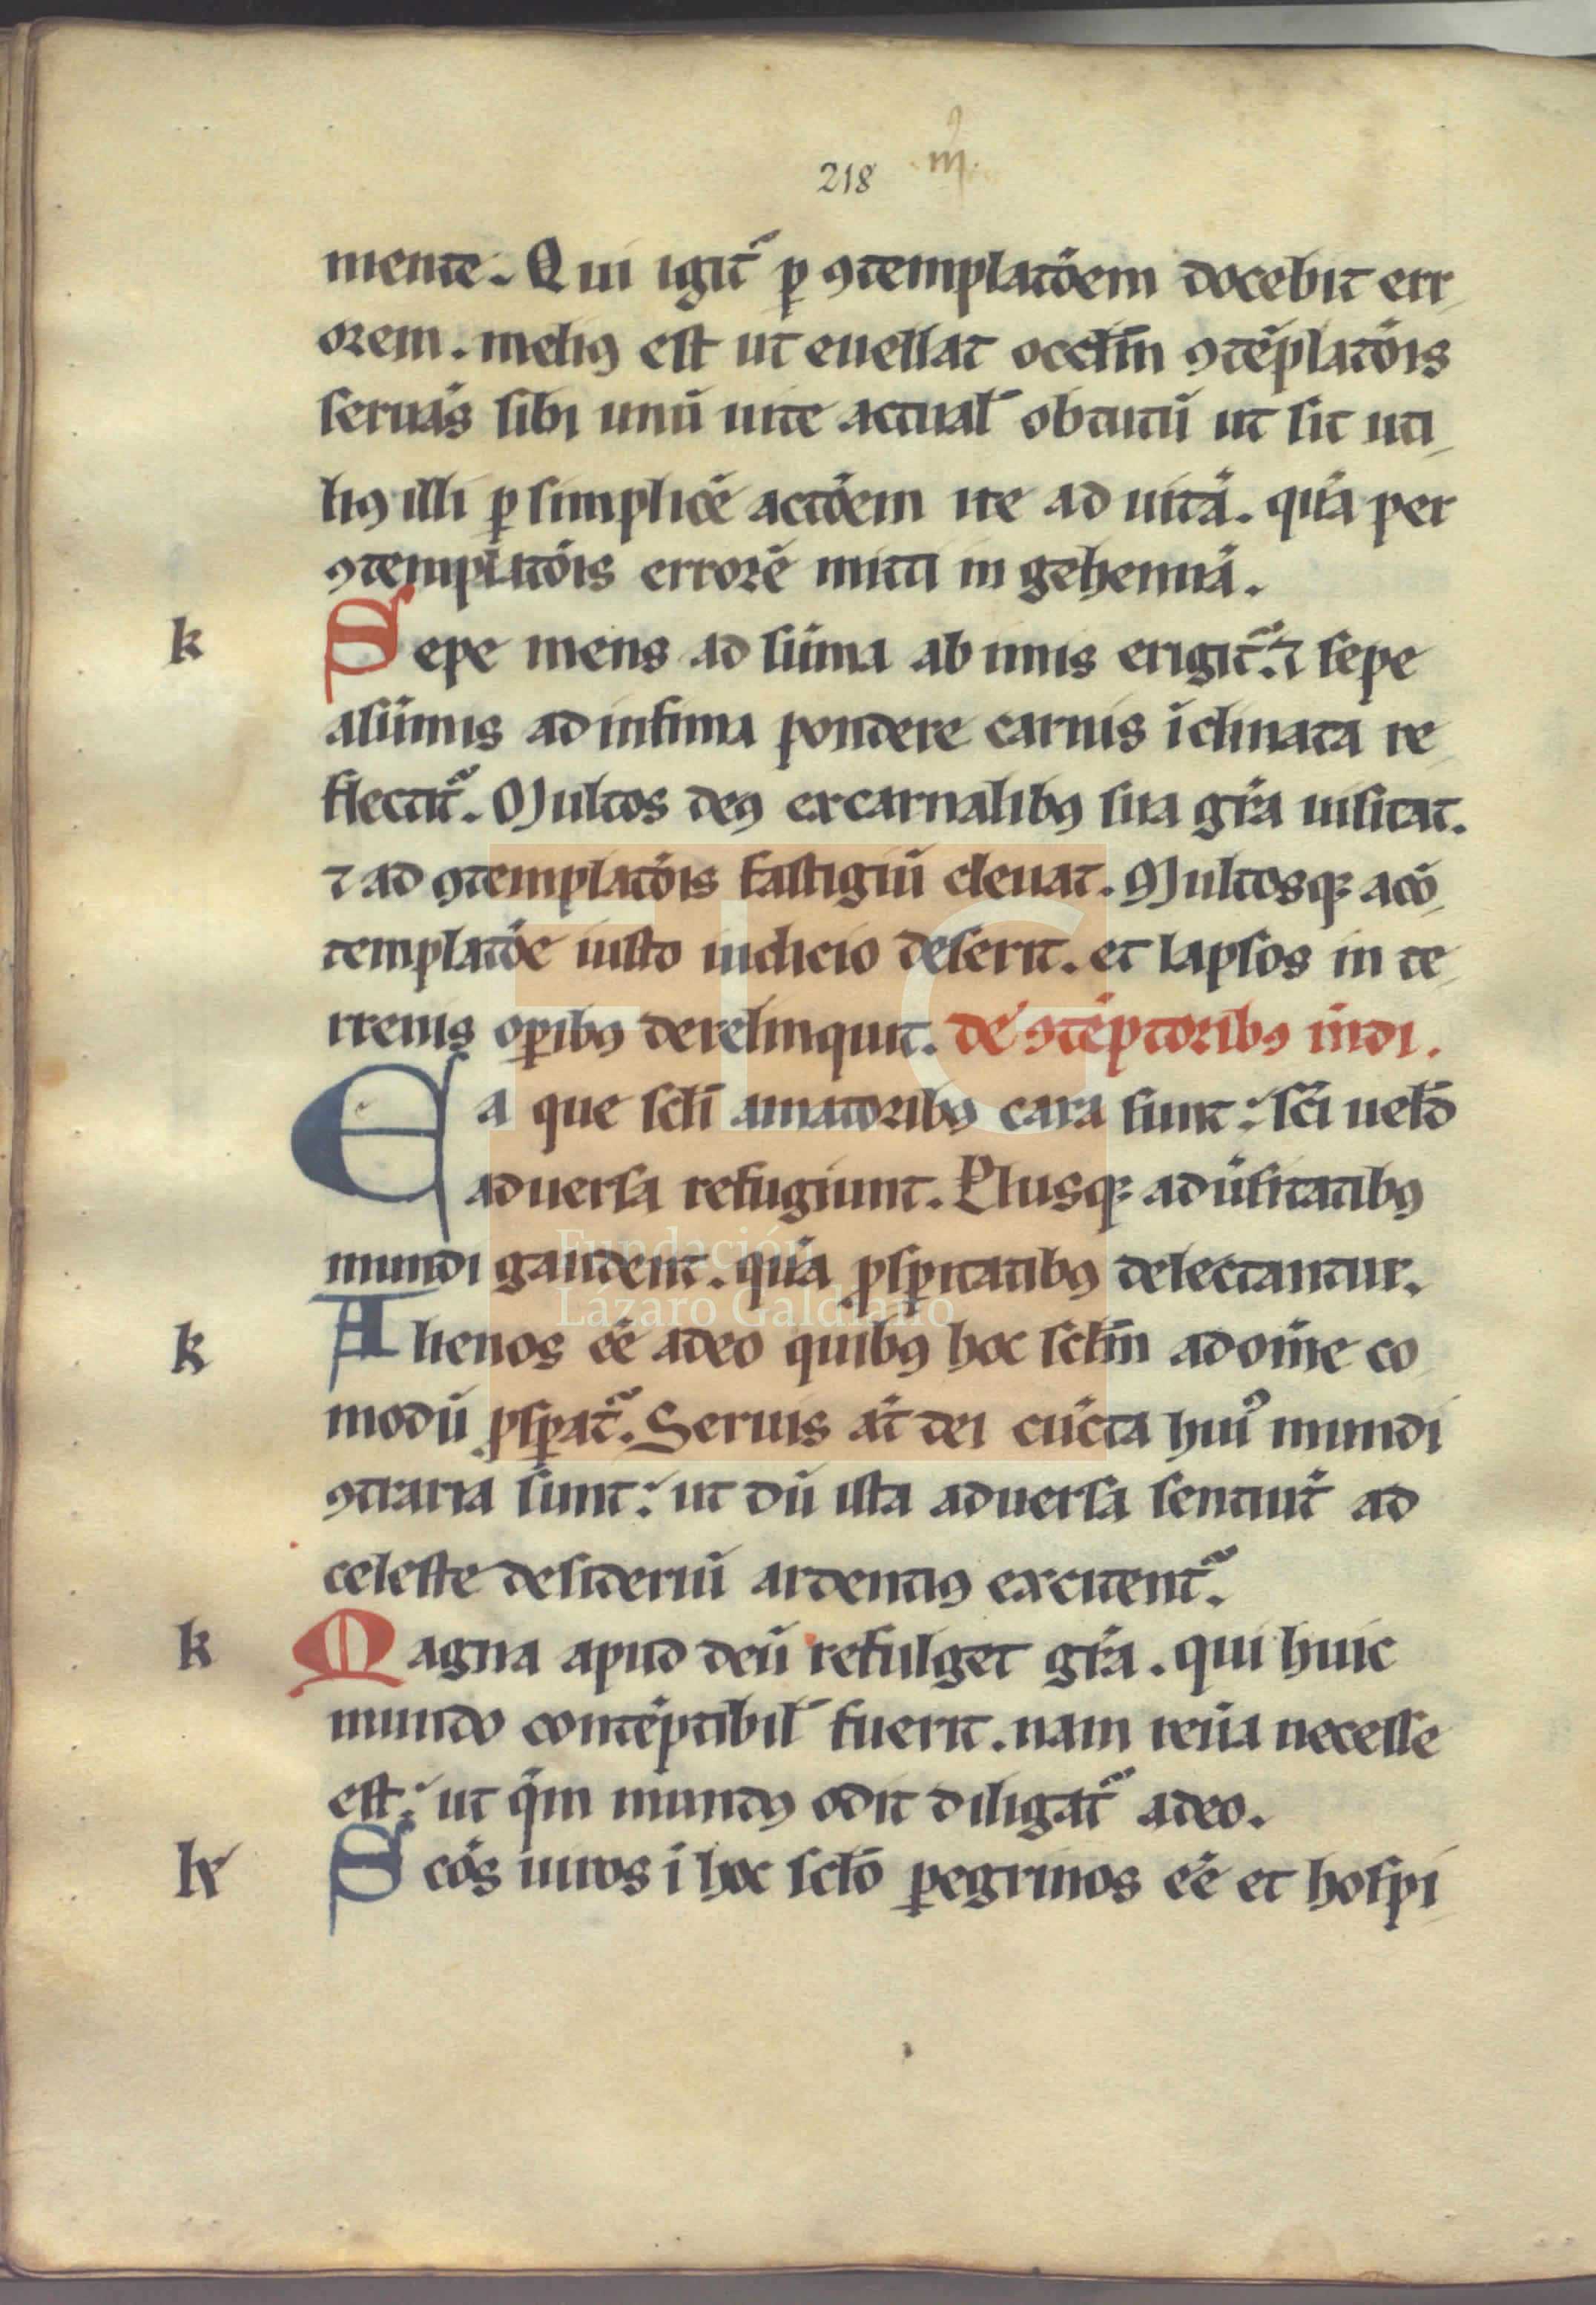 218 .m̃.
mente. Qui igit᷑ ꝑ ꝯtemplatōem docebit err
orem. meliꝰ est ut euellat occl̄m ꝯtēplatōis
seruās sibi unū uite actual̄ obtutū ut sit uti
liꝰ illi ꝑ simplicē actōem ire ad uitā. qͣ̄ per
ꝯtemplatōis errorē mitti in gehennā.
k Sepe mens ad sūma ab imis erigit᷑. ⁊ sepe
a sūmis ad infima pondere carnis īclinata re
flectit᷑. Multos deꝰ ex carnalibꝰ sua gr̄a uisitat.
⁊ ad ꝯtemplatōis fastigiū eleuat. Multosqꝫ a cō
templatōe iusto iudicio deserit. et lapsos in te
rrenis oꝑibꝰ derelinquit. de ꝯtēptoribꝰ mūdi.
Ea que scl̄i amatoribꝰ cara sunt: sc̄i uelđ
aduersa refugiunt. Plusqꝫ adūsitatibꝰ
mundi gaudent. qͣ̄ ꝓsꝑitatibꝰ delectantur.
k Alienos eē̄ a deo quibꝰ hoc scl̄m ad om̄e co
modū ꝓsꝑat᷑. Seruis āt dei cūcta huiꝰ mundi
ꝯtraria sunt: ut dū ista aduersa sentiūt ad
celeste desideriū ardentiꝰ excitent᷑.
k Magna apud deū refulget gr̄a. qui huic
mundo contēptibil̄ fuerit. nam reūa necesse
est: ut q̄m mundꝰ odit diligat᷑ a deo.
k Scōs uiros ī hoc scl̄o ꝑegrinos eē̄ et hospi
Fundación
Lázaro Galdiano